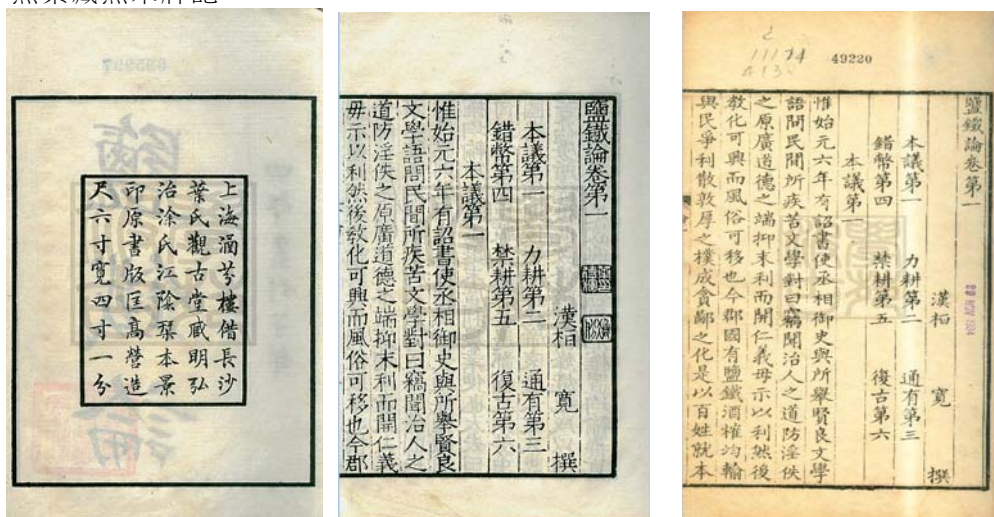 上海涵芬樓借長沙
葉氏觀古堂藏明弘
治涂氏江陰棃本景
印原書版匡高營造
尺六寸寬四寸一分
鹽鐵論卷第一
漢桓 寬 撰
本議第一 力耕第二 通有第三
錯幣第四 禁耕第五 復古第六
本議第一
惟始元六年有詔書使丞相御史與所舉賢良
文學語問民間所疾苦文學對曰竊聞治人之
道防淫佚之原廣道德之端抑末利而開仁義
毋示以利然後敎化可興而風俗可移也今郡
49220
鹽鐵論卷第一
漢桓 寬 撰
本議第一 力耕第二 通有第三
錯幣第四 禁耕第五 復古第六
本議第一
惟始元六年有詔書使丞相御史與所舉賢良文學
語問民間所疾苦文學對曰竊聞治人之道防淫佚
之原廣道德之端抑末利而開仁義毋示以利然後
敎化可興而風俗可移也今郡國有鹽鐵酒榷均輸
與民爭利散敦厚之樸成貪鄙之化是以百姓就本